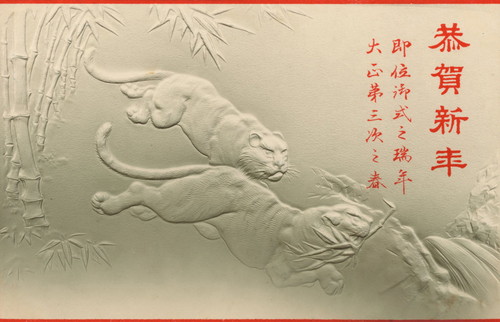 恭賀新年
即位御式之瑞年
大正第三次之春